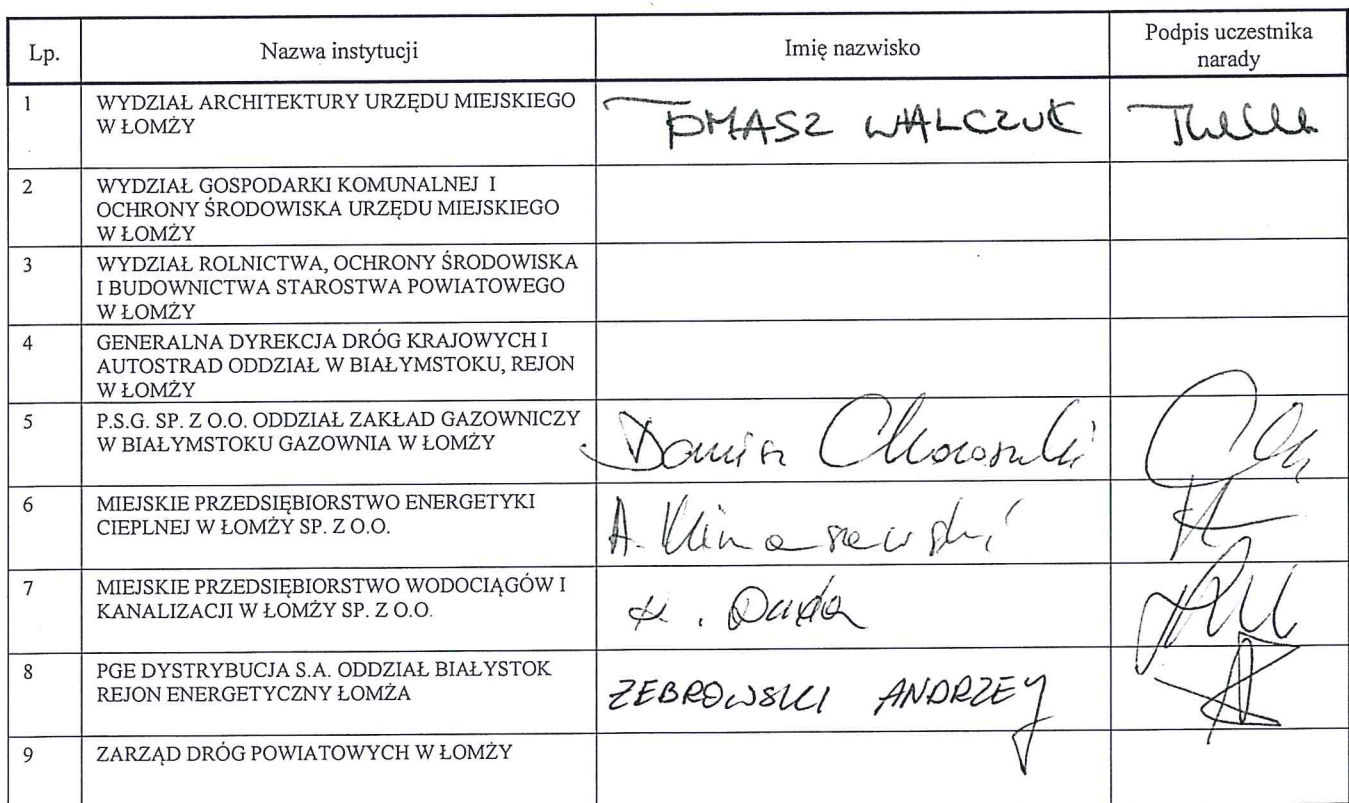 Lp. Nazwa instytucji Imię nazwisko Podpis uczestnika
narady
1 WYDZIAŁ ARCHITEKTURY URZĘDU MIEJSKIEGO
W ŁOMŻY
TOMASZ WALCZUK
2 WYDZIAŁ GOSPODARKI KOMUNALNEJ I
OCHRONY ŚRODOWISKA URZĘDU MIEJSKIEGO
W ŁOMŻY
3 WYDZIAŁ ROLNICTWA, OCHRONY ŚRODOWISKA
I BUDOWNICTWA STAROSTWA POWIATOWEGO
W ŁOMŻY
4 GENERALNA DYREKCJA DRÓG KRAJOWYCH I
AUTOSTRAD ODDZIAŁ W BIAŁYMSTOKU, REJON
W ŁOMŻY
5 P.S.G. SP. Z O.O. ODDZIAŁ ZAKŁAD GAZOWNICZY
W BIAŁYMSTOKU GAZOWNIA W ŁOMŻY
6 MIEJSKIE PRZEDSIĘBIORSTWO ENERGETYKI
CIEPLNEJ W ŁOMŻY SP. Z O.O.
A. Klimaszewski
7 MIEJSKIE PRZEDSIĘBIORSTWO WODOCIĄGÓW I
KANALIZACJI W ŁOMŻY SP. Z O.O.
K. Duda
8 PGE DYSTRYBUCJA S.A. ODDZIAŁ BIAŁYSTOK
REJON ENERGETYCZNY ŁOMŻA
ZEBROWSKI ANDRZEJ
9 ZARZĄD DRÓG POWIATOWYCH W ŁOMŻY